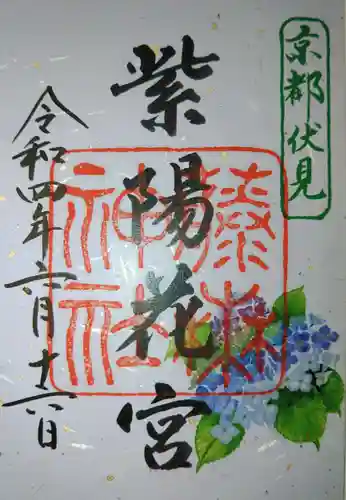 京都伏見
紫陽花宮
令和四年六月十六日